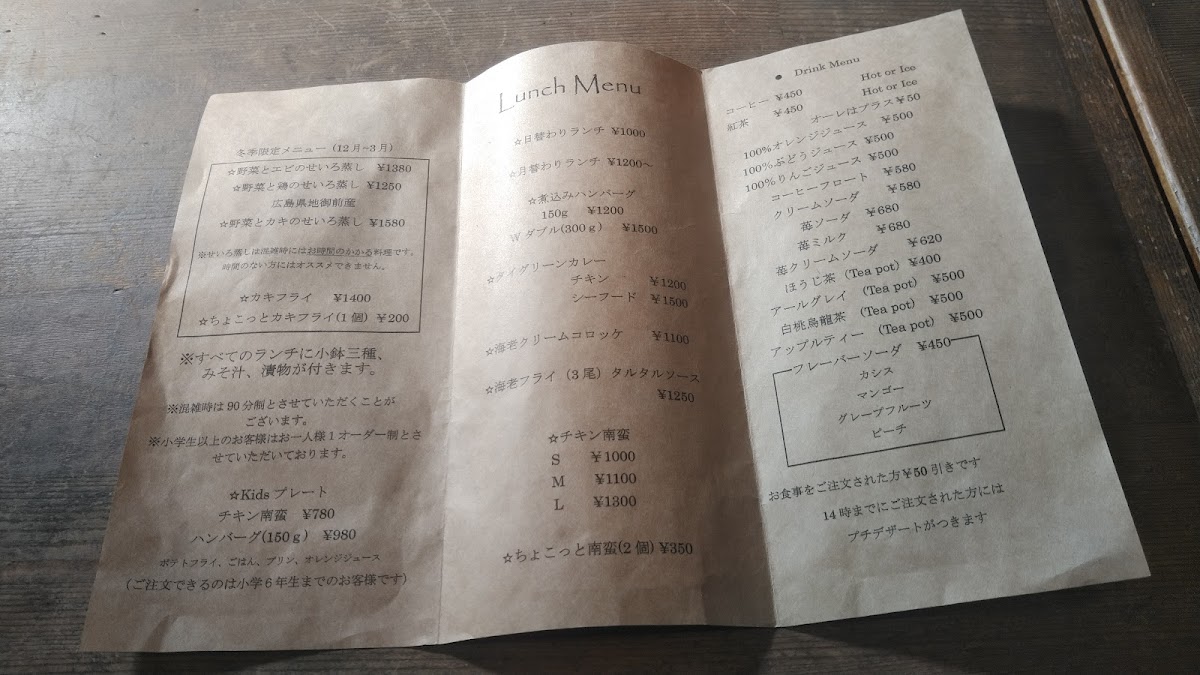 冬季限定メニュー (12月~3月)
☆野菜とエビのせいろ蒸し ¥1380
☆野菜と鶏のせいろ蒸し ¥1250
広島県地御前産
☆野菜とカキのせいろ蒸し ¥1580
※せいろ蒸しは混雑時にはお時間のかかる料理です。
時間のない方にはオススメできません。
☆カキフライ ¥1400
☆ちょこっとカキフライ(1個) ¥200
※すべてのランチに小鉢三種、
みそ汁、漬物が付きます。
※混雑時は90分制とさせていただくことが
ございます。
※小学生以上のお客様はお一人様1オーダー制とさ
せていただいております。
☆Kids プレート
チキン南蛮 ¥780
ハンバーグ(150g) ¥980
ポテトフライ、ごはん、プリン、オレンジジュース
(ご注文できるのは小学6年生までのお客様です)
Lunch Menu
☆日替わりランチ ¥1000
☆月替わりランチ ¥1200~
☆煮込みハンバーグ
150g ¥1200
W ダブル(300g) ¥1500
☆タイグリーンカレー
チキン ¥1200
シーフード ¥1500
☆海老クリームコロッケ ¥1100
☆海老フライ (3尾) タルタルソース
¥1250
☆チキン南蛮
S ¥1000
M ¥1100
L ¥1300
☆ちょこっと南蛮(2個) ¥350
● Drink Menu
コーヒー ¥450 Hot or Ice
紅茶 ¥450 Hot or Ice
オーレはプラス¥50
100%オレンジジュース ¥500
100%ぶどうジュース ¥500
100%りんごジュース ¥500
コーヒーフロート ¥580
クリームソーダ ¥580
苺ソーダ ¥680
苺ミルク ¥680
苺クリームソーダ ¥620
ほうじ茶 (Tea pot) ¥400
アールグレイ (Tea pot) ¥500
白桃烏龍茶 (Tea pot) ¥500
アップルティー (Tea pot) ¥500
フレーバーソーダ ¥450
カシス
マンゴー
グレープフルーツ
ピーチ
お食事をご注文された方¥50引きです
14時までにご注文された方には
プチデザートがつきます